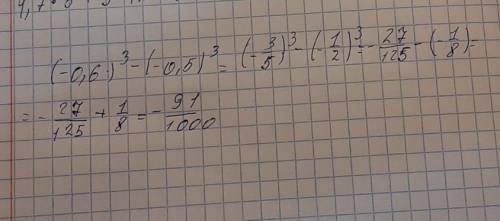 (-0,6)³-(-0,5)³=(-3/5)³-(-1/2)³=-27/125-(-1/8)=
=-27/125+1/8=-91/1000